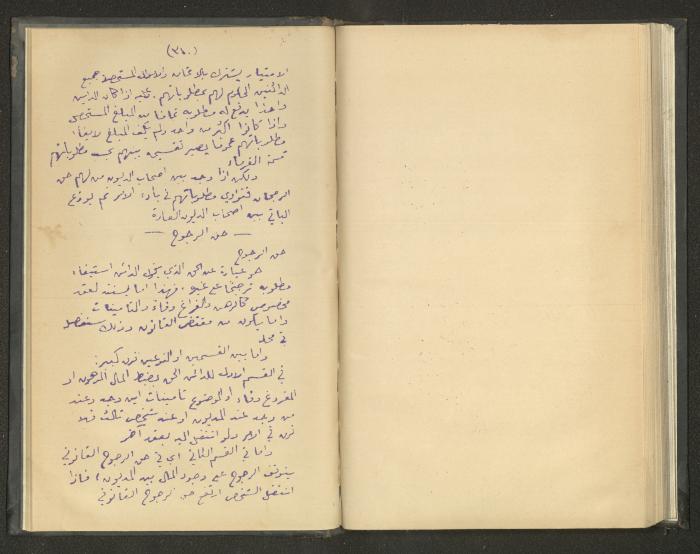 (٣١٠)
الامتياز يشترك بالاثمان والاموال المستحصلة جميع
الدائنين المحكوم لهم بمطلوباتهم . عليه اذا كان الدائن
واحدا يدفع له مطلوبه تماما من المبلغ المستحصل
واذا كانوا اكثر من واحد ولم يكف المبلغ لايفاء
مطلوباتهم عموما يصير تقسيمه بينهم بحسب مطلوباتهم
قسمة الغرماء
ولكن اذا وجد بين اصحاب الديون من لهم حق
الرجحان فتؤدى مطلوباتهم في بادئ الامر ثم يوزع
الباقي بين اصحاب الديون العادية
— حق الرجوح —
حق الرجوح
هو عبارة عن الحق الذي يخول الدائن استيفاء
مطلوبه ترجيحا على غيره . فهذا اما يستند لعقد
مخصوص كالرهن والفراغ وفاء والتأمينات
واما يكون من مقتضى القانون وذلك سنفصله
في محله
واما بين القسمين او النوعين فرق كبير :
في القسم الاول للدائن الحق بضبط المال المرهون او
المفروغ وفاء او الموضوع تأمينات اين وجد وعند
من وجد عند المديون او عند شخص ثالث فلا
فرق في الامر ولو انتقل اليه بعقد آخر
واما في القسم الثاني اي في حق الرجوح القانوني
يتوقف الرجوح على وجود المال بيد المديون ، فاذا
انتقل لشخص ارتفع حق الرجوح القانوني